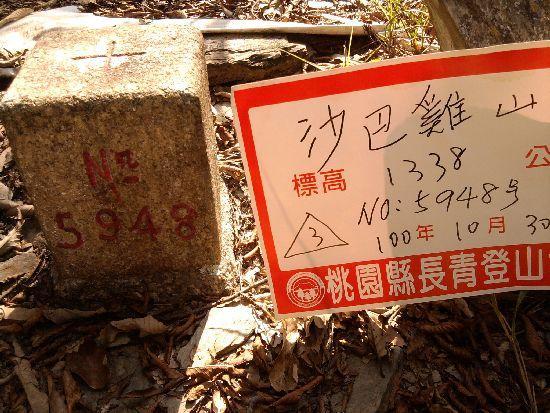 No
5948
沙巴雞山
標高 1338 公
NO:5948号
3
100年 10月 30
桃園縣長青登山